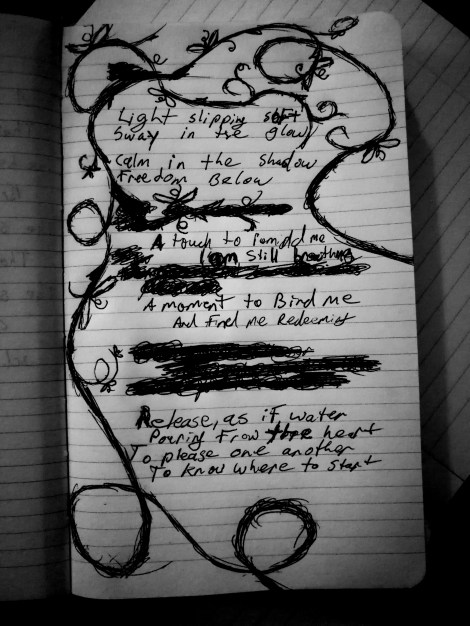 Light slipping soft
Sway in the glow
Calm in the shadow
Freedom Below
A touch to remind me
I am still breathing
A moment to Bind me
And Find me Redeeming
Release, as if water
Pouring from heart
To please one another
To know where to start